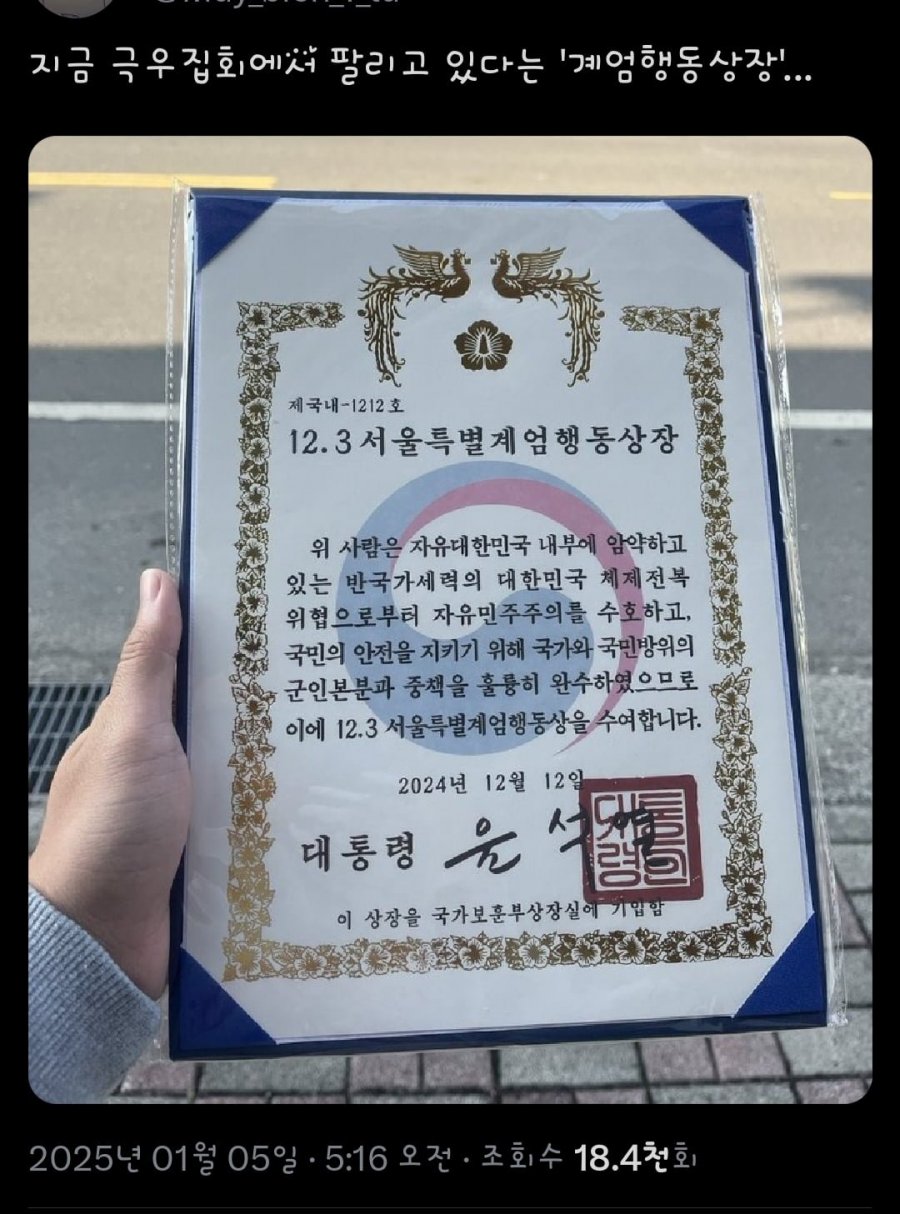 지금 극우집회에서 팔리고 있다는 '계엄행동상장'...
제국내-1212호
12.3 서울특별계엄행동상장
위 사람은 자유대한민국 내부에 암약하고
있는 반국가세력의 대한민국 체제전복
위협으로부터 자유민주주의를 수호하고,
국민의 안전을 지키기 위해 국가와 국민방위의
군인본분과 중책을 훌륭히 완수하였으므로
이에 12.3 서울특별계엄행동상을 수여합니다.
2024년 12월 12일
대통령 윤석열
이 상장을 국가보훈부상장실에 기입함
2025년 01월 05일 · 5:16 오전 · 조회수 18.4천회